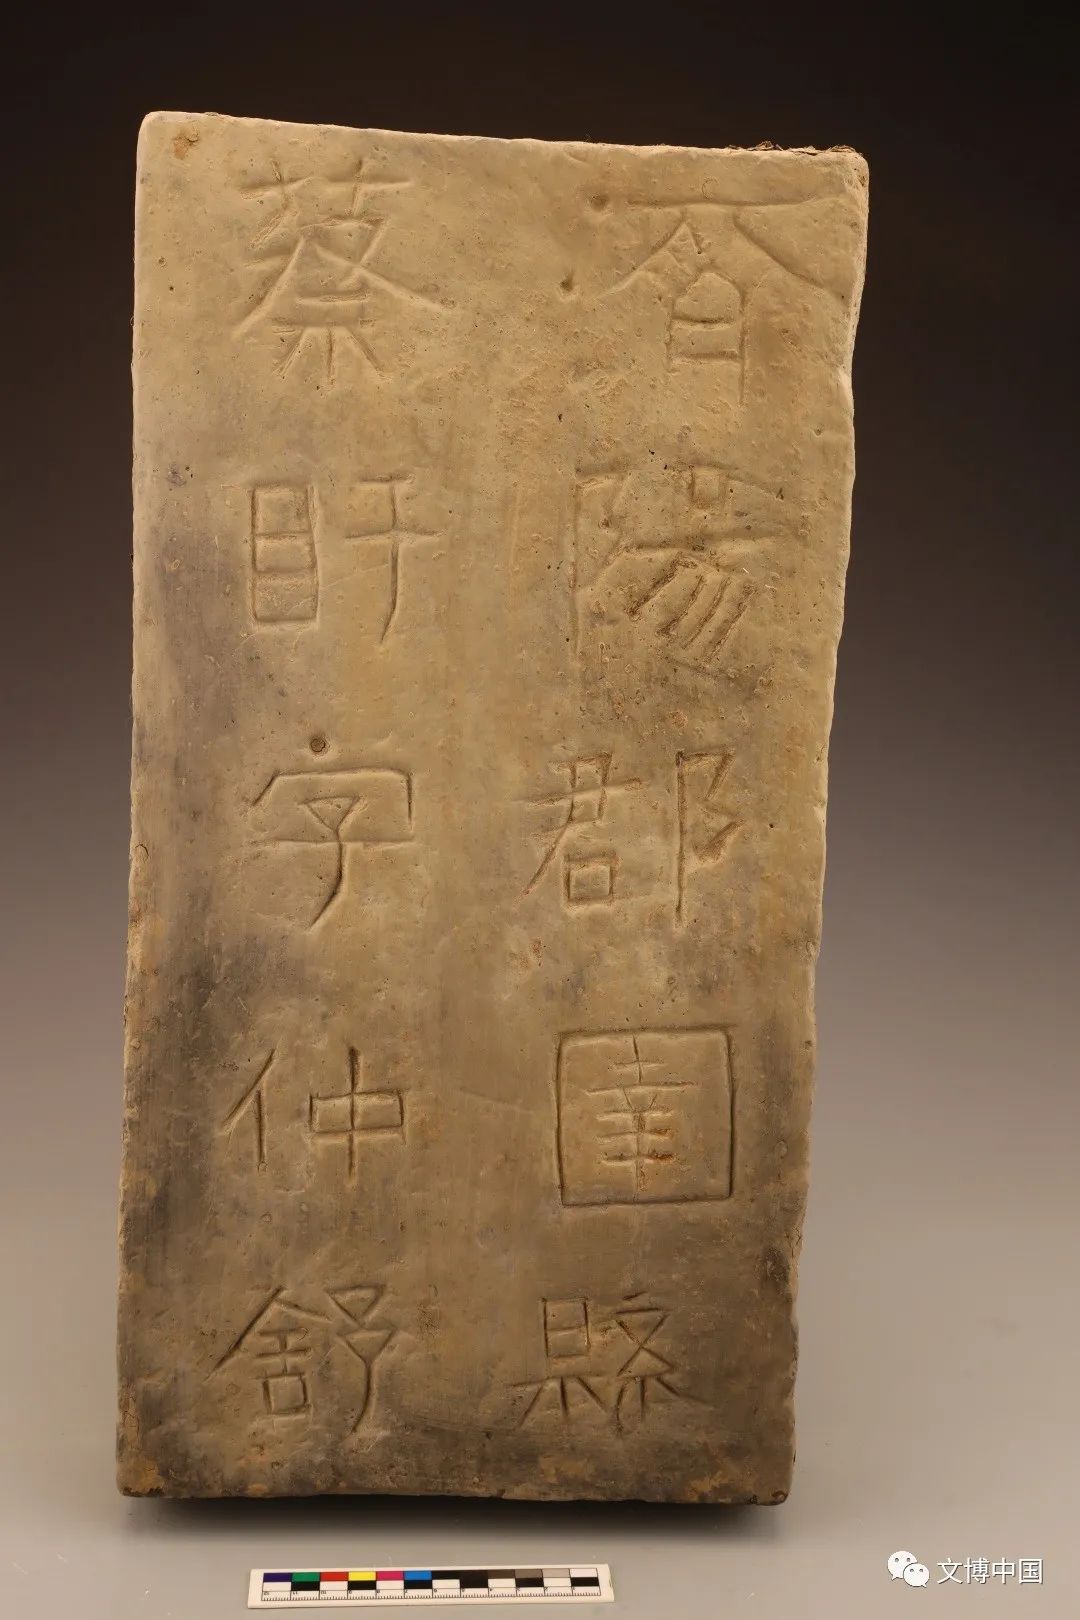 陽郡圉縣
蔡盱字仲舒
文博中国